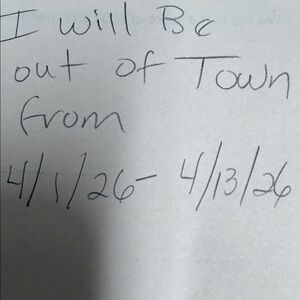 I will Be
out of Town
from
4/1/26- 4/13/26